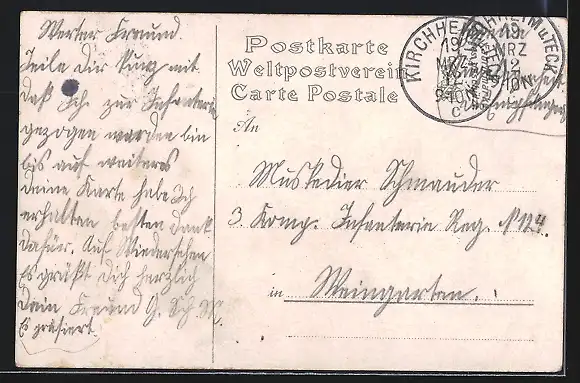 Werter Freund.
Teile Dir kurz mit
daß Ich zur Infanterie
gezogen worden bin
bis auf weiteres
deine Karte habe Ich
erhalten besten Dank
dafür. Auf Wiedersehen
Es grüßt Dich herzlich
dein Freund G. Sch
Es präsiert.
Postkarte
Weltpostverein
Carte Postale
KIRCHHEIM u. TECK.
19
MRZ
12
An
Musketier Schmauder
3 Komp. Infanterie Reg. N 124.
in Weingarten.